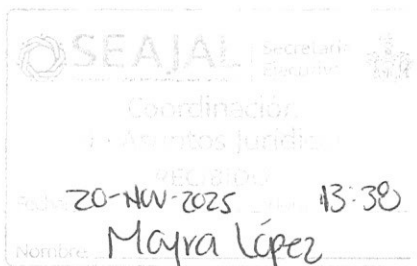 SEAJAL Secretaría
Ejecutiva
Coordinación
Asuntos Jurídic
RECIBIDO
Fecha 20-NOV-2025 13:30
Nombre: Mayra López